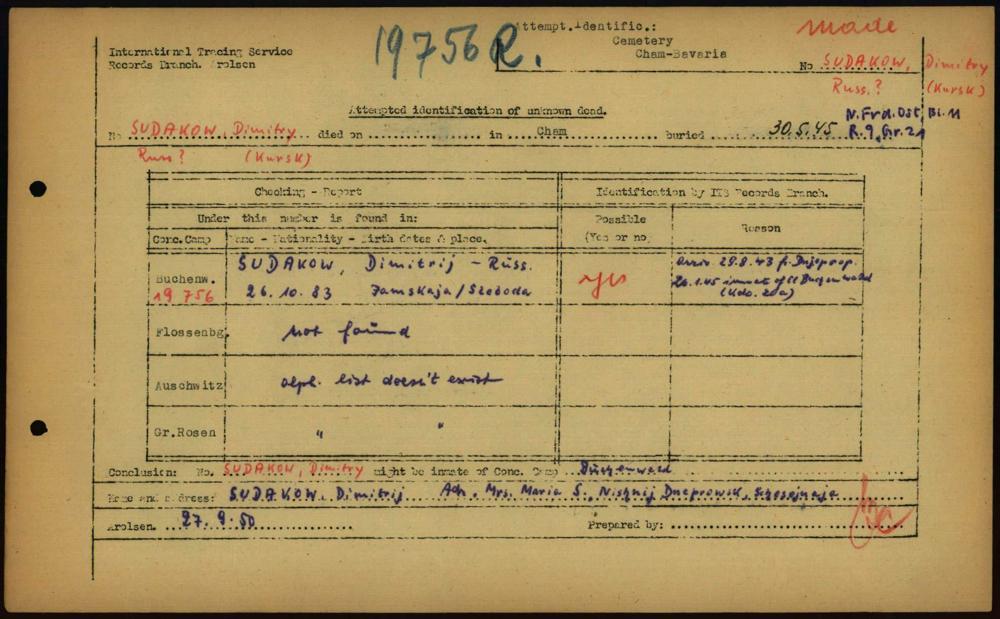 19756 R.
Attempt. Identific.:
Cemetery
Cham-Bavaria
made
International Tracing Service
Records Branch. Arolsen
No SUDAKOW, Dimitry
Russ.? (Kursk)
Attempted identification of unknown dead.
N. Frd. Ost, Bl. 11
R. 9, Gr. 21
No SUDAKOW, Dimitry died on in Cham buried 30.5.45
Russ? (Kursk)
Checking - Report Identification by ITS Records Branch.
Under this number is found in: Possible Reason
Conc.Camp Name - Nationality - Birth dates & place. (Yes or no)
Buchenw. SUDAKOW, Dimitrij - Russ. yes arriv. 29.8.43 f. Dnjeprop.
19 756 26.10.83 Jamskaja/Szoboda 20.1.45 inmate of CC Buchenwald
(Kdo. 20a)
Flossenbg. not found
Auschwitz alph. list doesn't exist
Gr.Rosen " "
Conclusion: No. SUDAKOW, Dimitry might be inmate of Conc. Camp Buchenwald
Name and address: SUDAKOW, Dimitrij Adr. Mrs. Maria S., Nishnij Dneprowsk,
Arolsen. 27.9.50 Prepared by: